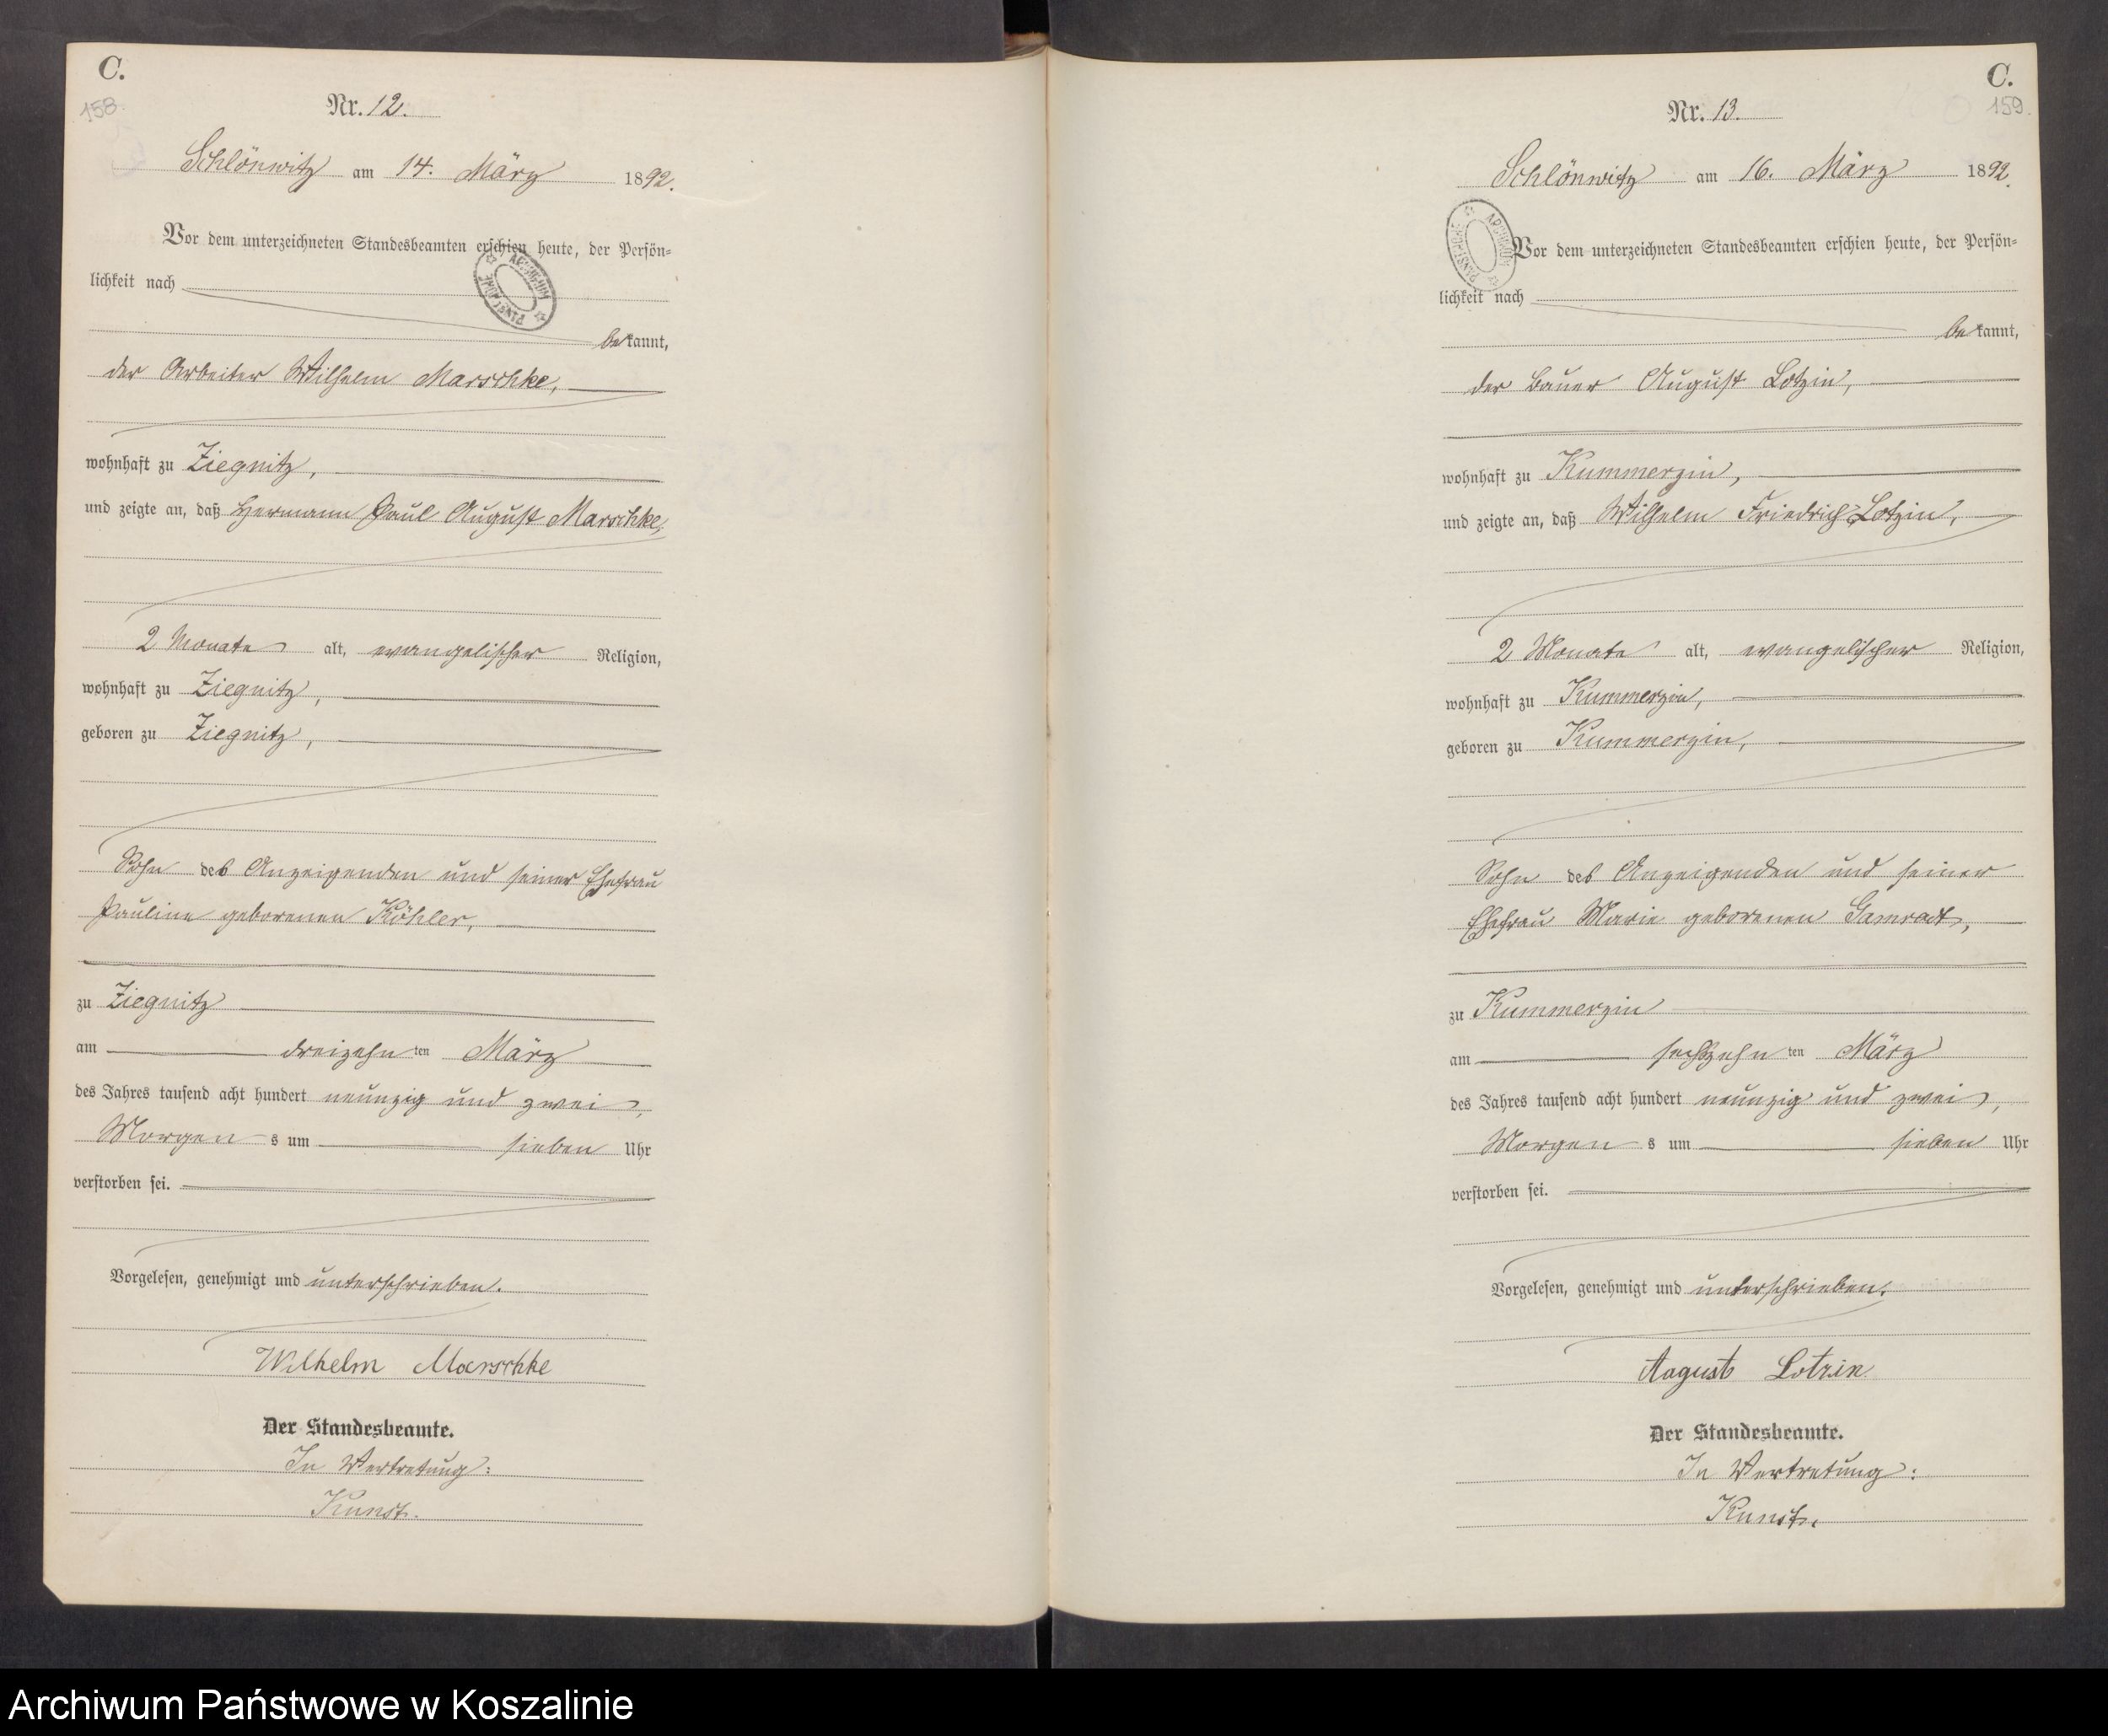 C.
158.
Nr. 12.
Schlönwitz am 14. März 1892.
Vor dem unterzeichneten Standesbeamten erschien heute, der Persön=
lichkeit nach
bekannt,
der Arbeiter Wilhelm Marschke,
wohnhaft zu Ziegnitz,
und zeigte an, daß Hermann Paul August Marschke,
2 Monate alt, evangelischer Religion,
wohnhaft zu Ziegnitz,
geboren zu Ziegnitz,
Sohn des Anzeigenden und seiner Ehefrau
Pauline geborenen Köhler,
zu Ziegnitz
am dreizehn ten März
des Jahres tausend acht hundert neunzig und zwei,
Morgen s um sieben Uhr
verstorben sei.
Vorgelesen, genehmigt und unterschrieben.
Wilhelm Marschke
Der Standesbeamte.
In Vertretung:
Kunst.
C.
159.
Nr. 13.
Schlönwitz am 16. März 1892.
Vor dem unterzeichneten Standesbeamten erschien heute, der Persön=
lichkeit nach
bekannt,
der Bauer August Lotzin,
wohnhaft zu Kummerzin,
und zeigte an, daß Wilhelm Friedrich Lotzin,
2 Monate alt, evangelischer Religion,
wohnhaft zu Kummerzin,
geboren zu Kummerzin,
Sohn des Anzeigenden und seiner
Ehefrau Marie geborenen Gamradt,
zu Kummerzin
am sechszehn ten März
des Jahres tausend acht hundert neunzig und zwei,
Morgen s um sieben Uhr
verstorben sei.
Vorgelesen, genehmigt und unterschrieben.
August Lotzin
Der Standesbeamte.
In Vertretung:
Kunst.
Archiwum Państwowe w Koszalinie